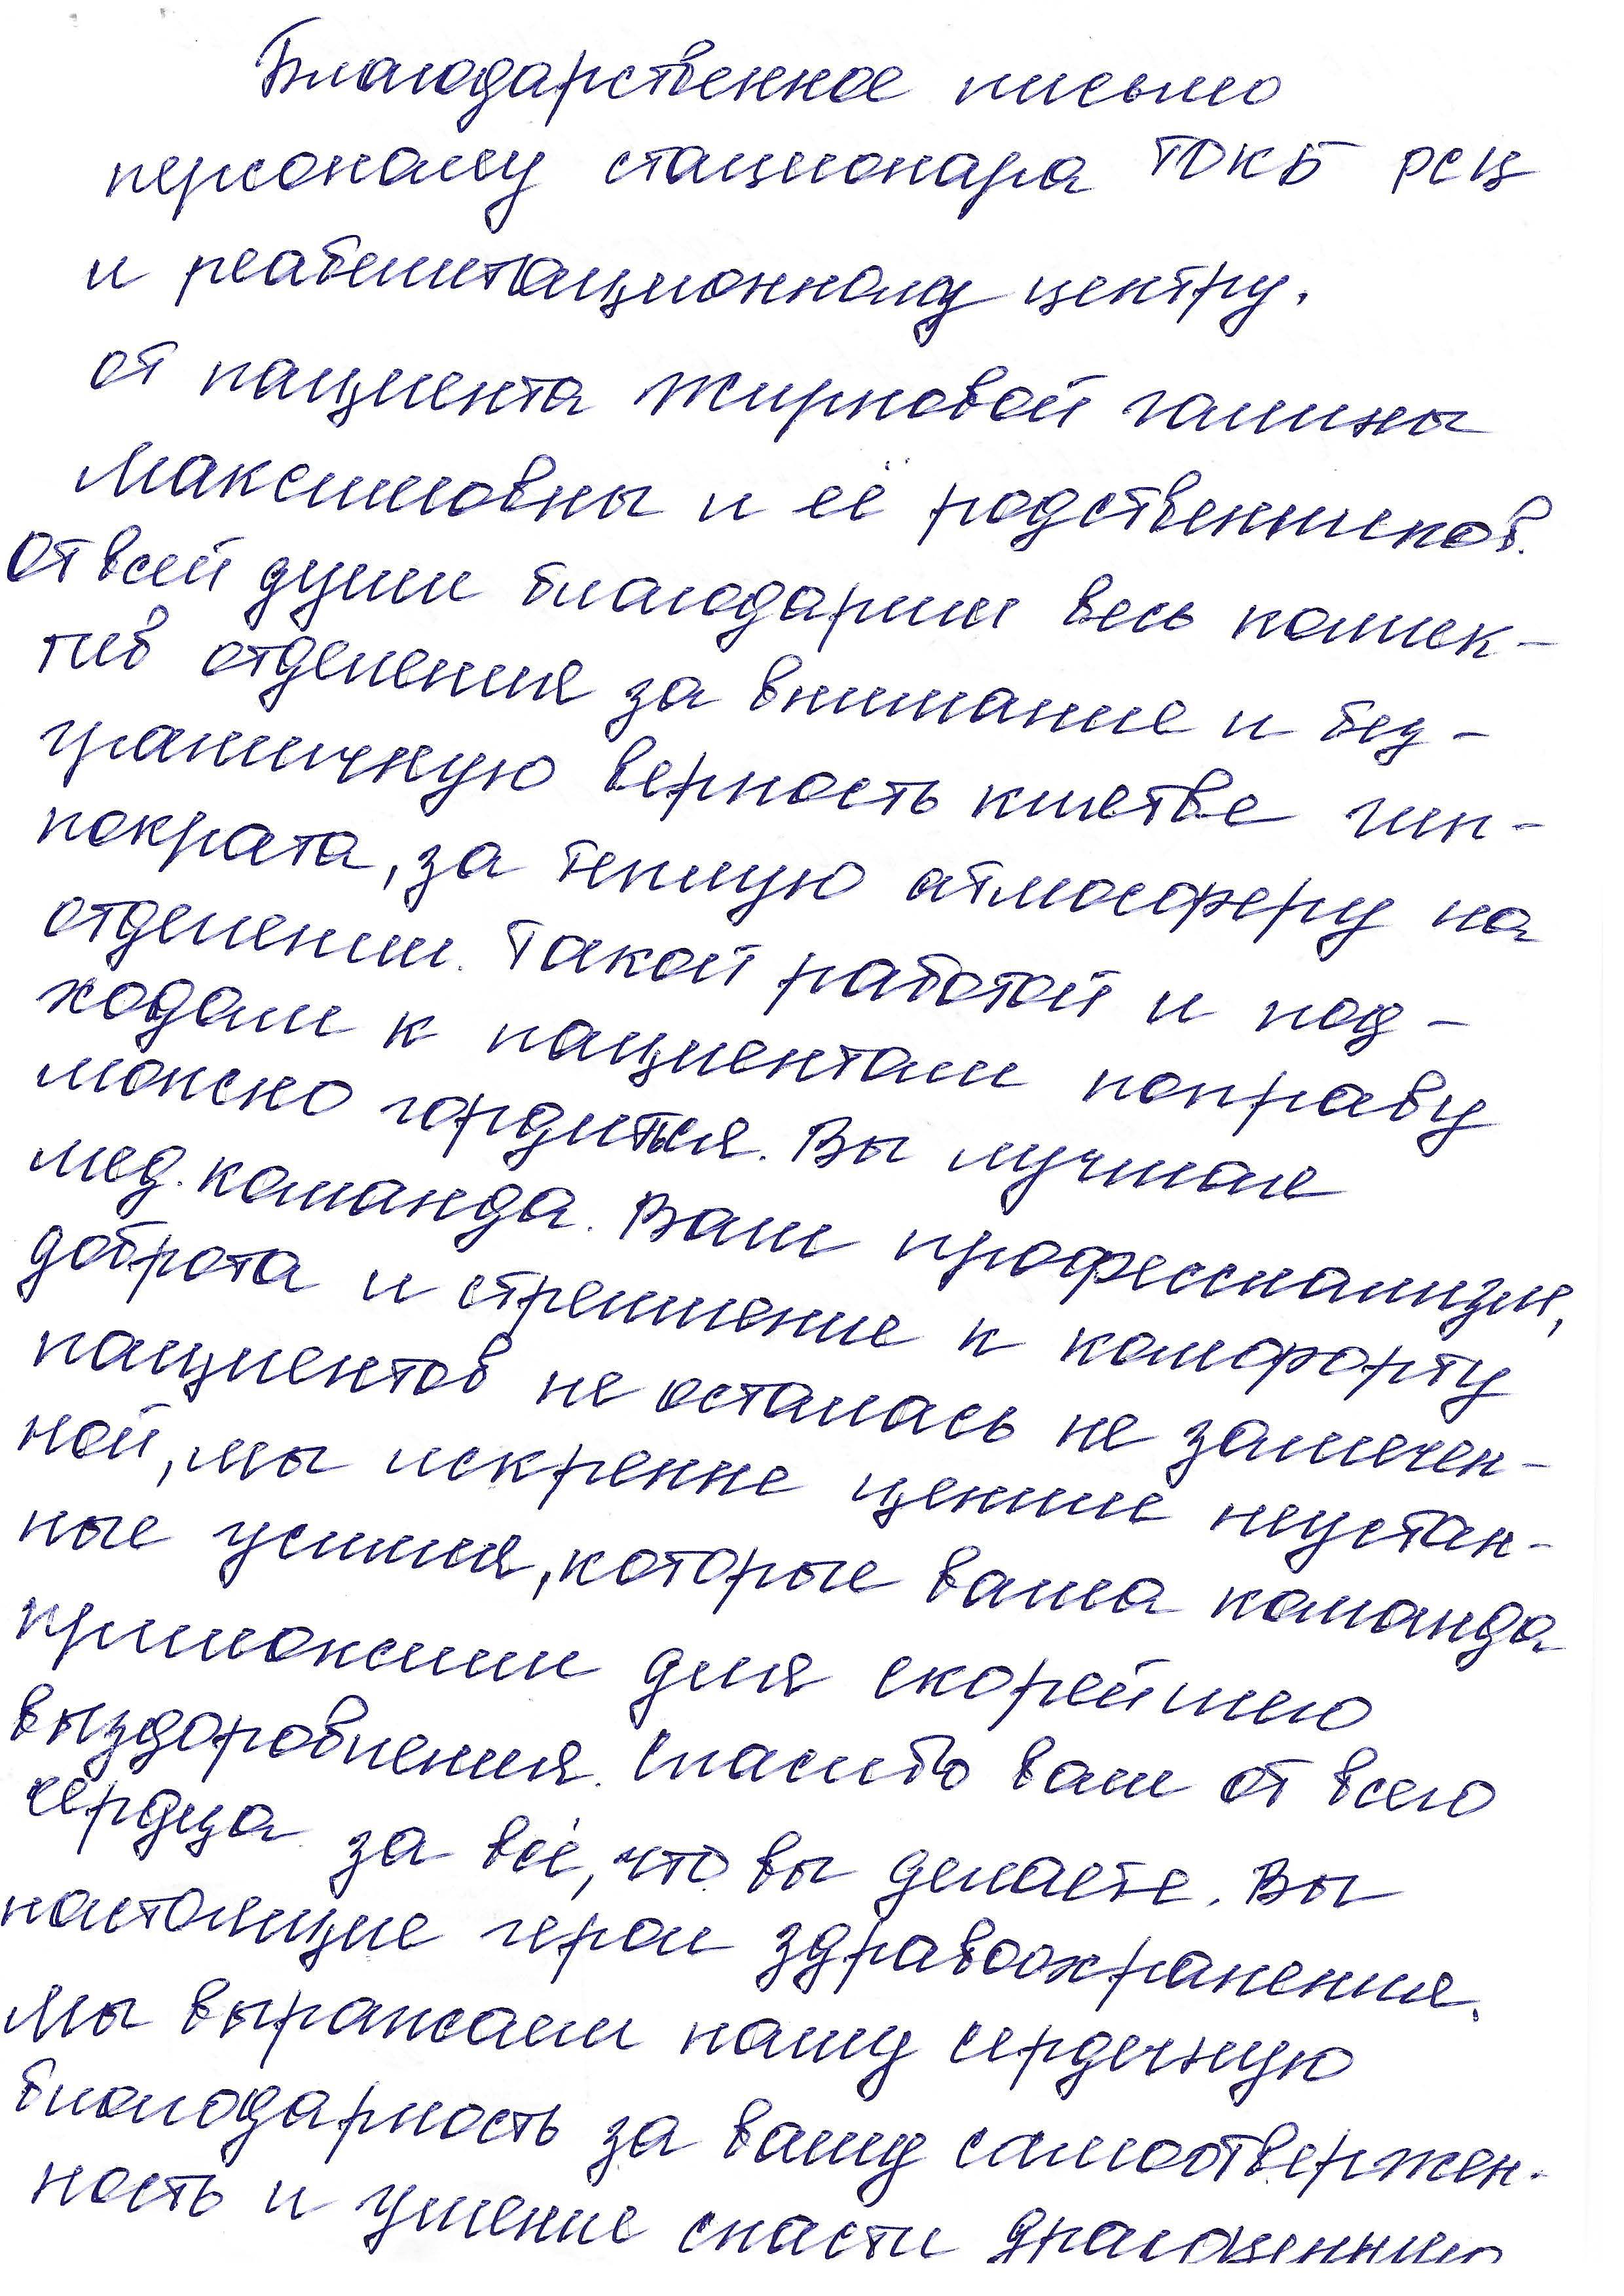 Благодарственное письмо
персоналу стационара ТОКБ РСЦ
и реабилитационному центру.
от пациента Жирновой Галины
Максимовны и её родственников.
От всей души благодарим весь коллек-
тив отделения за внимание и без-
граничную верность клятве Гип-
пократа, за теплую атмосферу на
отделении. Такой работой и под-
ходом к пациентам поправу
можно гордиться. Вы лучшая
мед. команда. Ваш професснализм,
доброта и стремление к комфорту
пациентов не осталась не замечен-
ной, мы искренне ценим неустан-
ные усилия, которые ваша команда
приложили для скорейшего
выздоровления. Спасибо вам от всего
сердца за всё, что вы делаете. Вы
настоящие герои здравоохранения.
Мы выражаем нашу сердечную
благодарность за вашу самоотвержен-
ность и умение спасти драгоценную